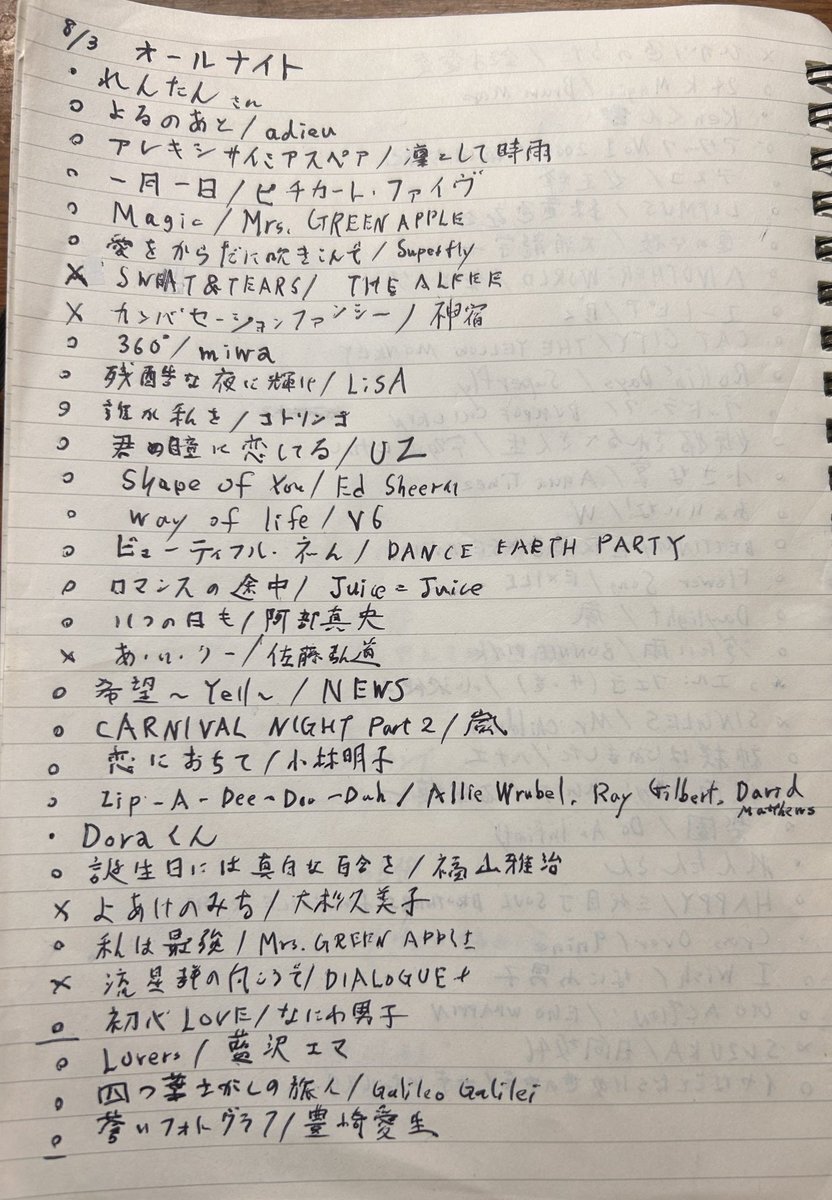 8/3 オールナイト
・れんたん さん
○ よるのあと/adieu
○ アレキシサイミアスペア/凛として時雨
○ 一月一日/ピチカート・ファイヴ
○ Magic/Mrs. GREEN APPLE
○ 愛をからだに吹きこんで/Superfly
× SWEAT&TEARS/ THE ALFEE
× カンバセーションファンシー/神宿
○ 360°/miwa
○ 残酷な夜に輝け/LiSA
○ 誰か私を/コトリンゴ
○ 君の瞳に恋してる/UZ
○ Shape of You/Ed Sheeran
○ way of life/V6
○ ビューティフル・ネーム/DANCE EARTH PARTY
○ ロマンスの途中/Juice=Juice
○ いつの日も/阿部真央
× あ・い・うー/佐藤弘道
○ 希望〜Yell〜/NEWS
○ CARNIVAL NIGHT Part 2/嵐
○ 恋におちて/小林明子
○ Zip-A-Dee-Doo-Dah/Allie Wrubel, Ray Gilbert, David Matthews
・Doraくん
○ 誕生日には真白な百合を/福山雅治
× よあけのみち/大杉久美子
○ 私は最強/Mrs. GREEN APPLE
× 流星群の向こうで/DIALOGUE+
○ 初心LOVE/なにわ男子
○ Lovers/藍沢エマ
○ 四つ葉さがしの旅人/Galileo Galilei
○ 蒼いフォトグラフ/豊崎愛生